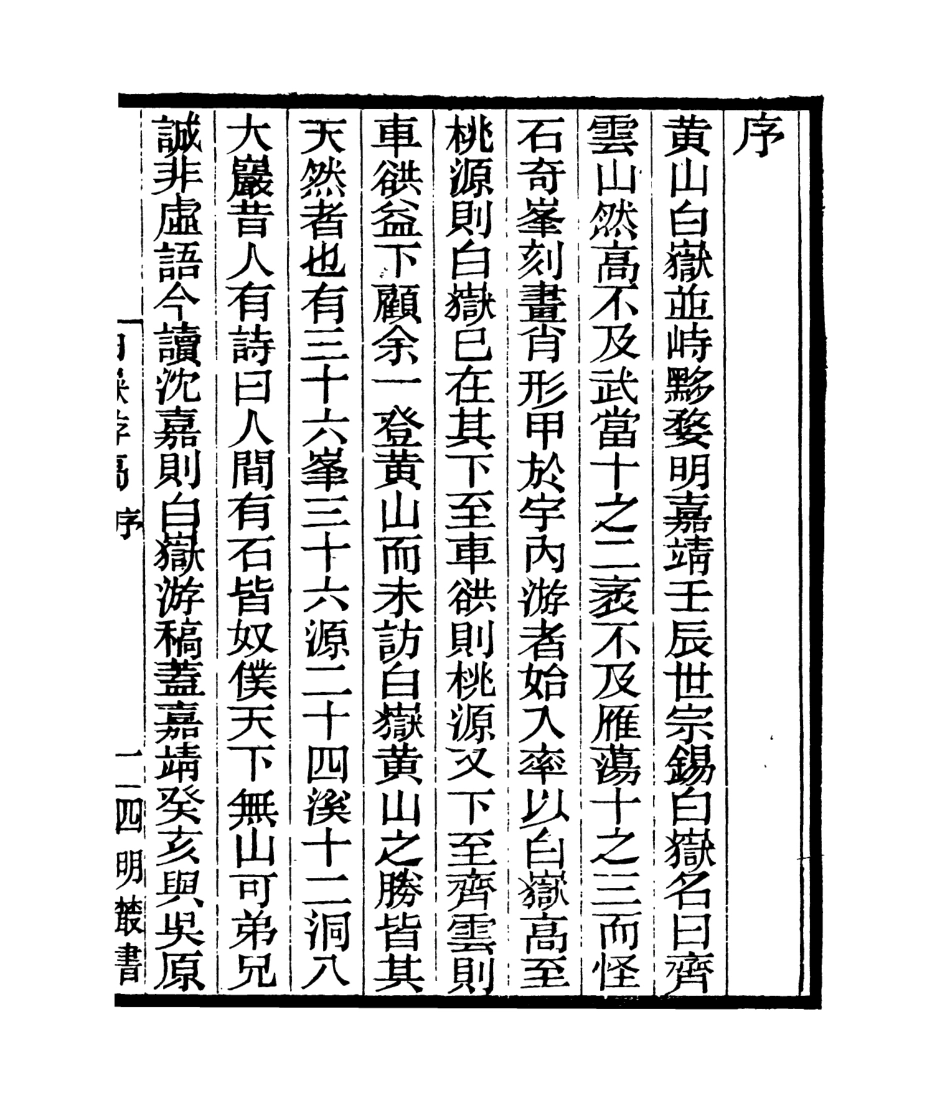 序
黄山白嶽並峙黟婺明嘉靖壬辰世宗錫白嶽名曰齊
雲山然高不及武當十之二袤不及雁蕩十之三而怪
石奇峯刻畫肖形甲於宇內游者始入率以白嶽高至
桃源則白嶽已在其下至車谼則桃源又下至齊雲則
車谼益下顧余一登黄山而未訪白嶽黄山之勝皆其
天然者也有三十六峯三十六源二十四溪十二洞八
大巖昔人有詩曰人間有石皆奴僕天下無山可弟兄
誠非虛語今讀沈嘉則白嶽游稿蓋嘉靖癸亥與吳原
白嶽游稿 序 一 四明叢書